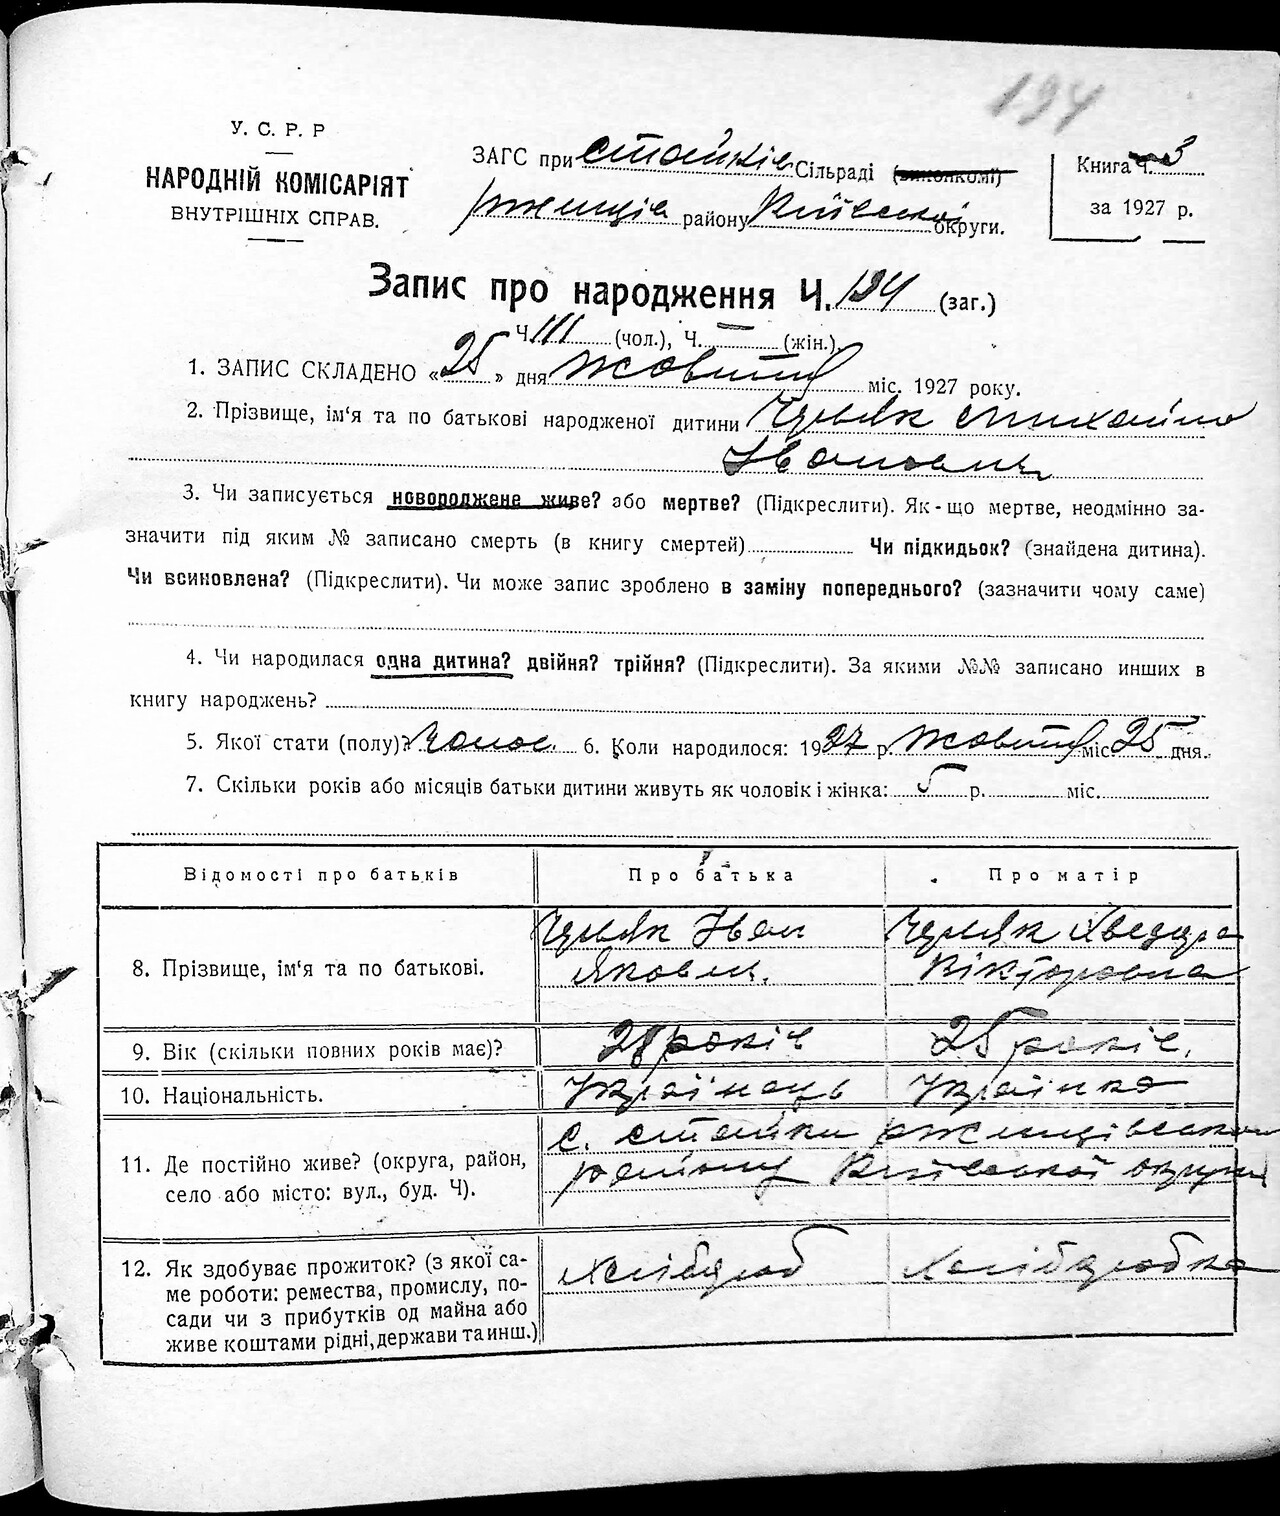 194
У. С. Р. Р
НАРОДНІЙ КОМІСАРІЯТ
ВНУТРІШНІХ СПРАВ.
ЗАГС при Стайків Сільраді (виконкомі)
Ржищів району Київської округи.
Книга ч. 3
за 1927 р.
Запис про народження Ч. 194 (заг.)
Ч. 111 (чол.), Ч. — (жін.).
1. ЗАПИС СКЛАДЕНО «25» дня Жовтня міс. 1927 року.
2. Прізвище, ім‘я та по батькові народженої дитини Михайло
Іванович
3. Чи записується новороджене живе? або мертве? (Підкреслити). Як-що мертве, неодмінно за-
значити під яким № записано смерть (в книгу смертей) Чи підкидьок? (знайдена дитина).
Чи всиновлена? (Підкреслити). Чи може запис зроблено в заміну попереднього? (зазначити чому саме)
4. Чи народилася одна дитина? двійня? трійня? (Підкреслити). За якими №№ записано инших в
книгу народжень?
5. Якої стати (полу)? Чолов. 6. Коли народилося: 1927 р. Жовтня міс. 25 дня.
7. Скільки років або місяців батьки дитини живуть як чоловік і жінка: 5 р. міс.
Відомості про батьків Про батька Про матір
8. Прізвище, ім‘я та по батькові.
Іван
Яковл.
Хведора
Вікторовна
9. Вік (скільки повних років має)? 28 років 25 років.
10. Національність. Українець Українка
11. Де постійно живе? (округа, район,
село або місто: вул., буд. Ч).
С. Стайки Ржищівського
району Київської округи
12. Як здобуває прожиток? (з якої са-
ме роботи: ремества, промислу, по-
сади чи з прибутків од майна або
живе коштами рідні, держави та инш.)
Хлібороб Хліборобка